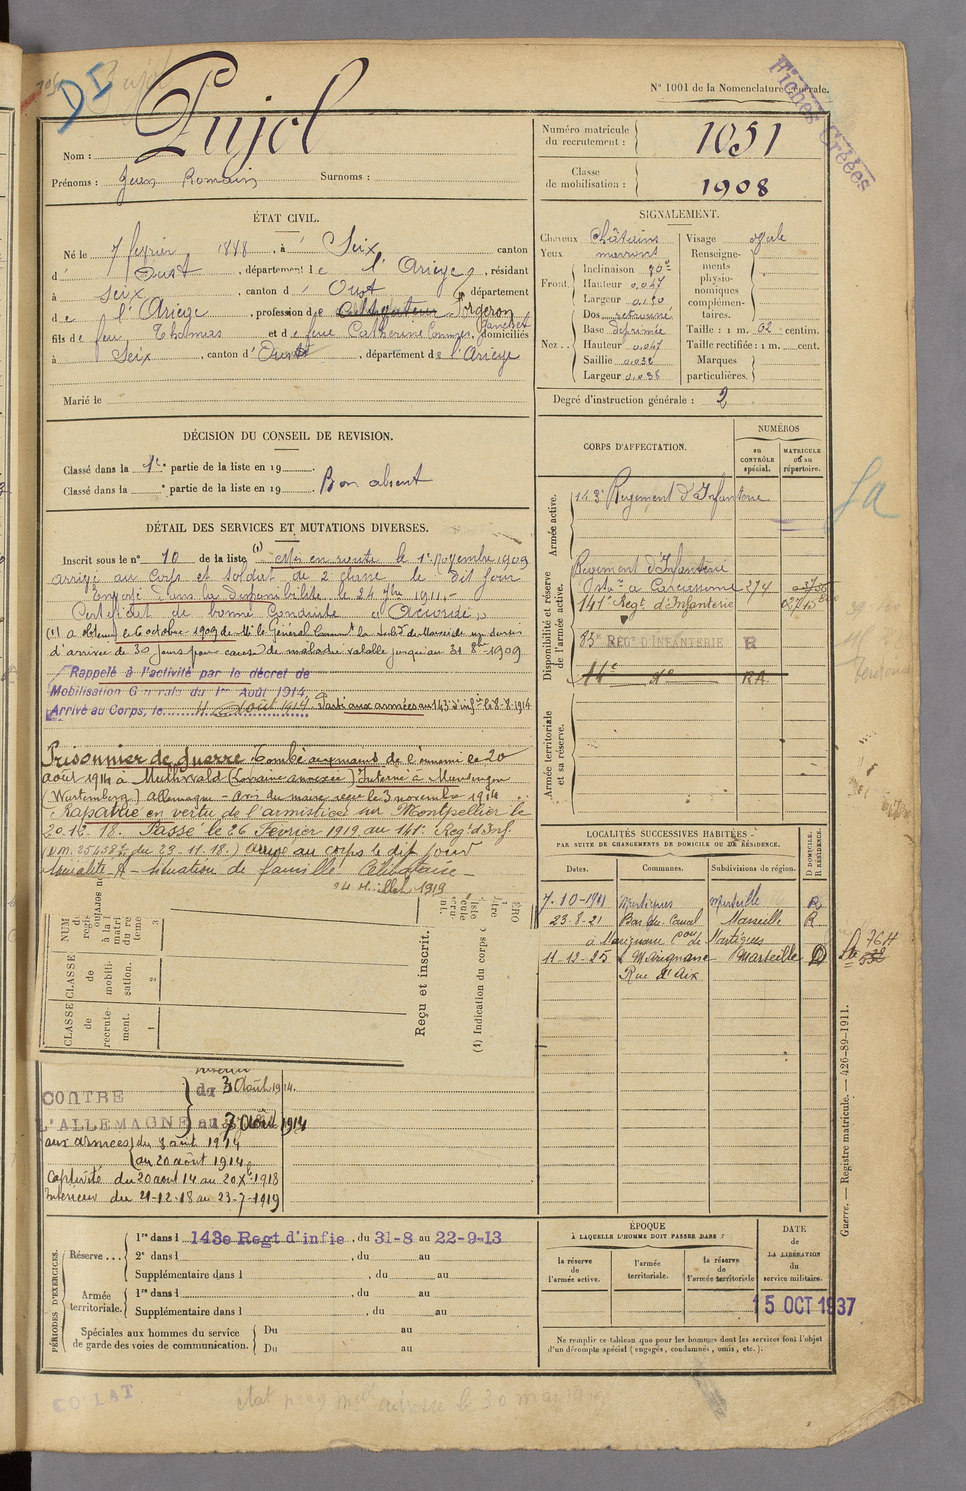 DI
N° 1001 de la Nomenclature Générale.
Fiches Créées
Nom : Pujol
Prénoms : Jean Romain Surnoms :
Numéro matricule du recrutement : 1051
Classe de mobilisation : 1908
ÉTAT CIVIL.
Né le 7 février 1888, à Seix canton
d' Oust, département de l'Ariège, résidant
à Seix, canton d' Oust département
de l'Ariège, profession de Cultivateur Forgeron
fils de feu Thomas et de feue Catherine domiciliés
à Seix, canton d' Oust, département de l'Ariège
Marié le
SIGNALEMENT.
Cheveux Châtains
Yeux marrons
Front. Inclinaison
Hauteur 0.047
Largeur
Nez.. Dos
Base déprimée
Hauteur 0.047
Saillie 0.032
Largeur 0.036
Visage ovale
Renseignements physionomiques complémentaires.
Taille : 1 m. 62 centim.
Taille rectifiée : 1 m. cent.
Marques particulières.
Degré d'instruction générale : 2
DÉCISION DU CONSEIL DE REVISION.
Classé dans la 1re partie de la liste en 19
Classé dans la ° partie de la liste en 19 Bon absent
DÉTAIL DES SERVICES ET MUTATIONS DIVERSES.
Inscrit sous le n° 10 de la liste (1) Mis en route le 1er Novembre 1909
arrivé au Corps et soldat de 2e classe le dit jour
Envoyé dans la Disponibilité le 24 7bre 1911.-
Certificat de bonne Conduite "Accordé"
(1) a obtenu le 6 octobre 1909 de Mr le Général Commt la subd. de Marseille un sursis
d'arrivée de 30 jours pour cause de maladie valable jusqu'au 31 8bre 1909
Rappelé à l'activité par le décret de
Mobilisation Générale du 1er Août 1914,
Arrivé au Corps, le 4 Août 1914. Parti aux armées au 143e d'infie le 8-8-1914
Prisonnier de guerre Tombé aux mains de l'ennemi le 20
août 1914 à (Lorraine annexée) Interné à Munsingen
(Wurtemberg) allemagne - avis du maire reçu le 3 novembre 1914
Rapatrié en vertu de l'armistice sur Montpellier le
20.12.18. Passé le 26 Février 1919 au 141e Reg' d'Inf.
du 23-11-18.) arrivé au corps le dit jour
situation de famille Célibataire -
24 Juillet 1919
CLASSE de recrutement. 1
CLASSE de mobilisation. 2
3
Reçu et inscrit.
(1) Indication du corps
CONTRE L'ALLEMAGNE
du 3 Août 1914.
au 7 Août 1914
aux armées du 8 août 1914
au 20 août 1914
Captivité du 20 août 14 au 20 Xbre 1918
Intérieur du 21-12-18 au 23-7-1919
CORPS D'AFFECTATION.
NUMÉROS
au CONTRÔLE spécial.
MATRICULE ou au répertoire.
Armée active.
143e Régiment d'Infanterie
Disponibilité et réserve de l'armée active.
Régiment d'Infanterie
à Carcassonne 274
141e Régt d'Infanterie
RÉGt D'INFANTERIE R
RA
Armée territoriale et sa réserve.
Sa
LOCALITÉS SUCCESSIVES HABITÉES
PAR SUITE DE CHANGEMENTS DE DOMICILE OU DE RÉSIDENCE.
Dates. Communes. Subdivisions de région. D DOMICILE. R RÉSIDENCE.
7-10-1911 Martigues Marseille R
23.8.21 Bar du Canal Marseille R
à Marignane con de Martigues
11-12-25 Marignane Marseille D
Rue d'Aix
Guerre. — Registre matricule. — 426-89-1911.
PÉRIODES D'EXERCICES.
Réserve... 1re dans l 143e Regt d'infie, du 31-8 au 22-9-13
2e dans l , du au
Supplémentaire dans l , du au
Armée territoriale. 1re dans l , du au
Supplémentaire dans l , du au
Spéciales aux hommes du service de garde des voies de communication. Du au
Du au
ÉPOQUE
À LAQUELLE L'HOMME DOIT PASSER DANS :
la réserve de l'armée active.
l'armée territoriale.
la réserve de l'armée territoriale
DATE DE LA LIBÉRATION du service militaire.
15 OCT 1937
Ne remplir ce tableau que pour les hommes dont les services font l'objet
d'un décompte spécial (engagés, condamnés, omis, etc.).